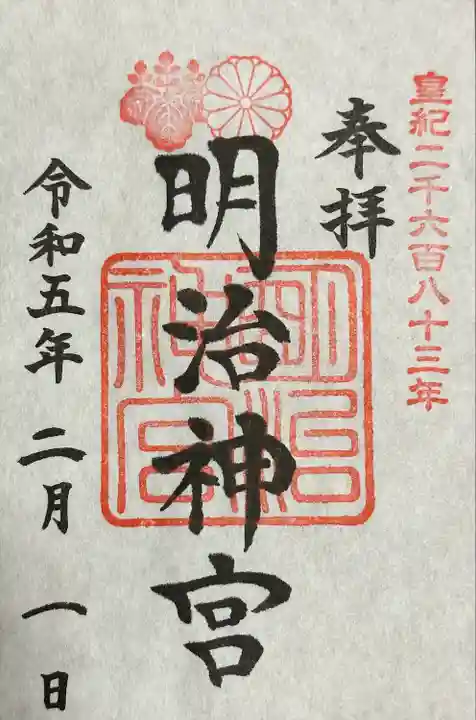 皇紀二千六百八十三年
奉拝
明治神宮
明治神宮
令和五年 二月 一日